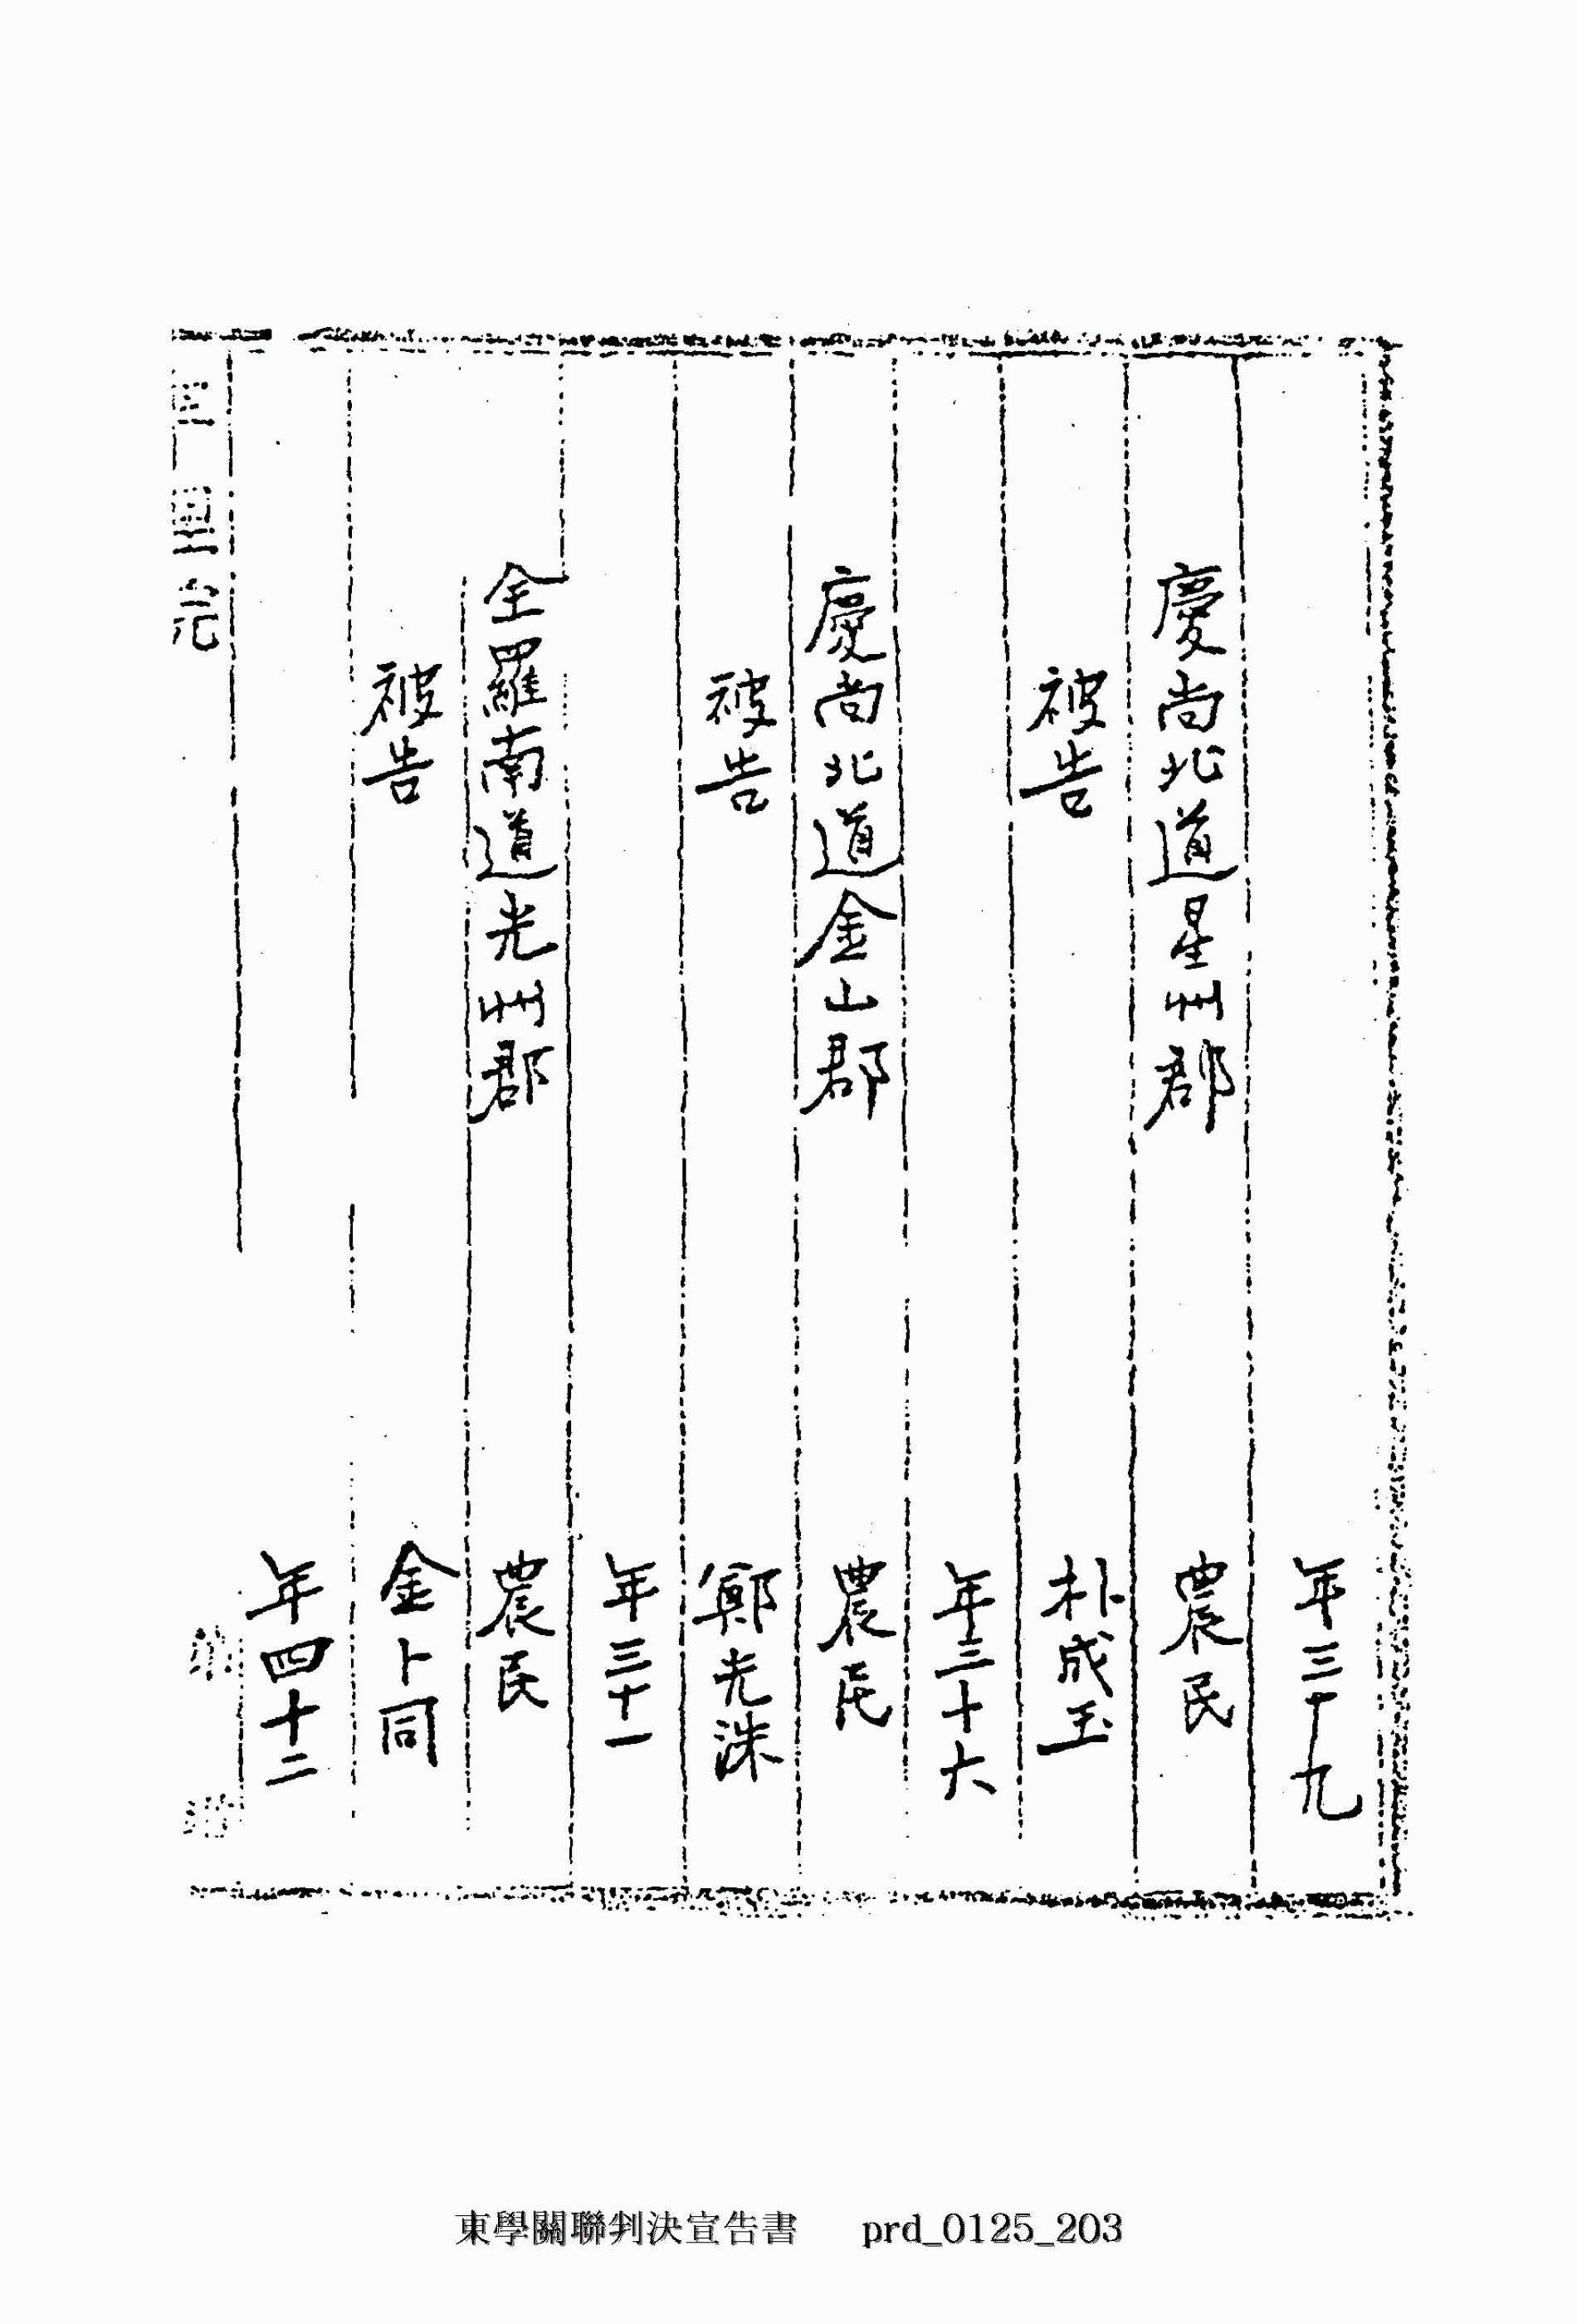 年三十九
慶尚北道星州郡 農民
被告 朴成玉
年三十六
慶尚北道金山郡 農民
被告 鄭光洙
年三十一
全羅南道光州郡 農民
被告 金卜同
年四十二
東學關聯判決宣告書 prd_0125_203